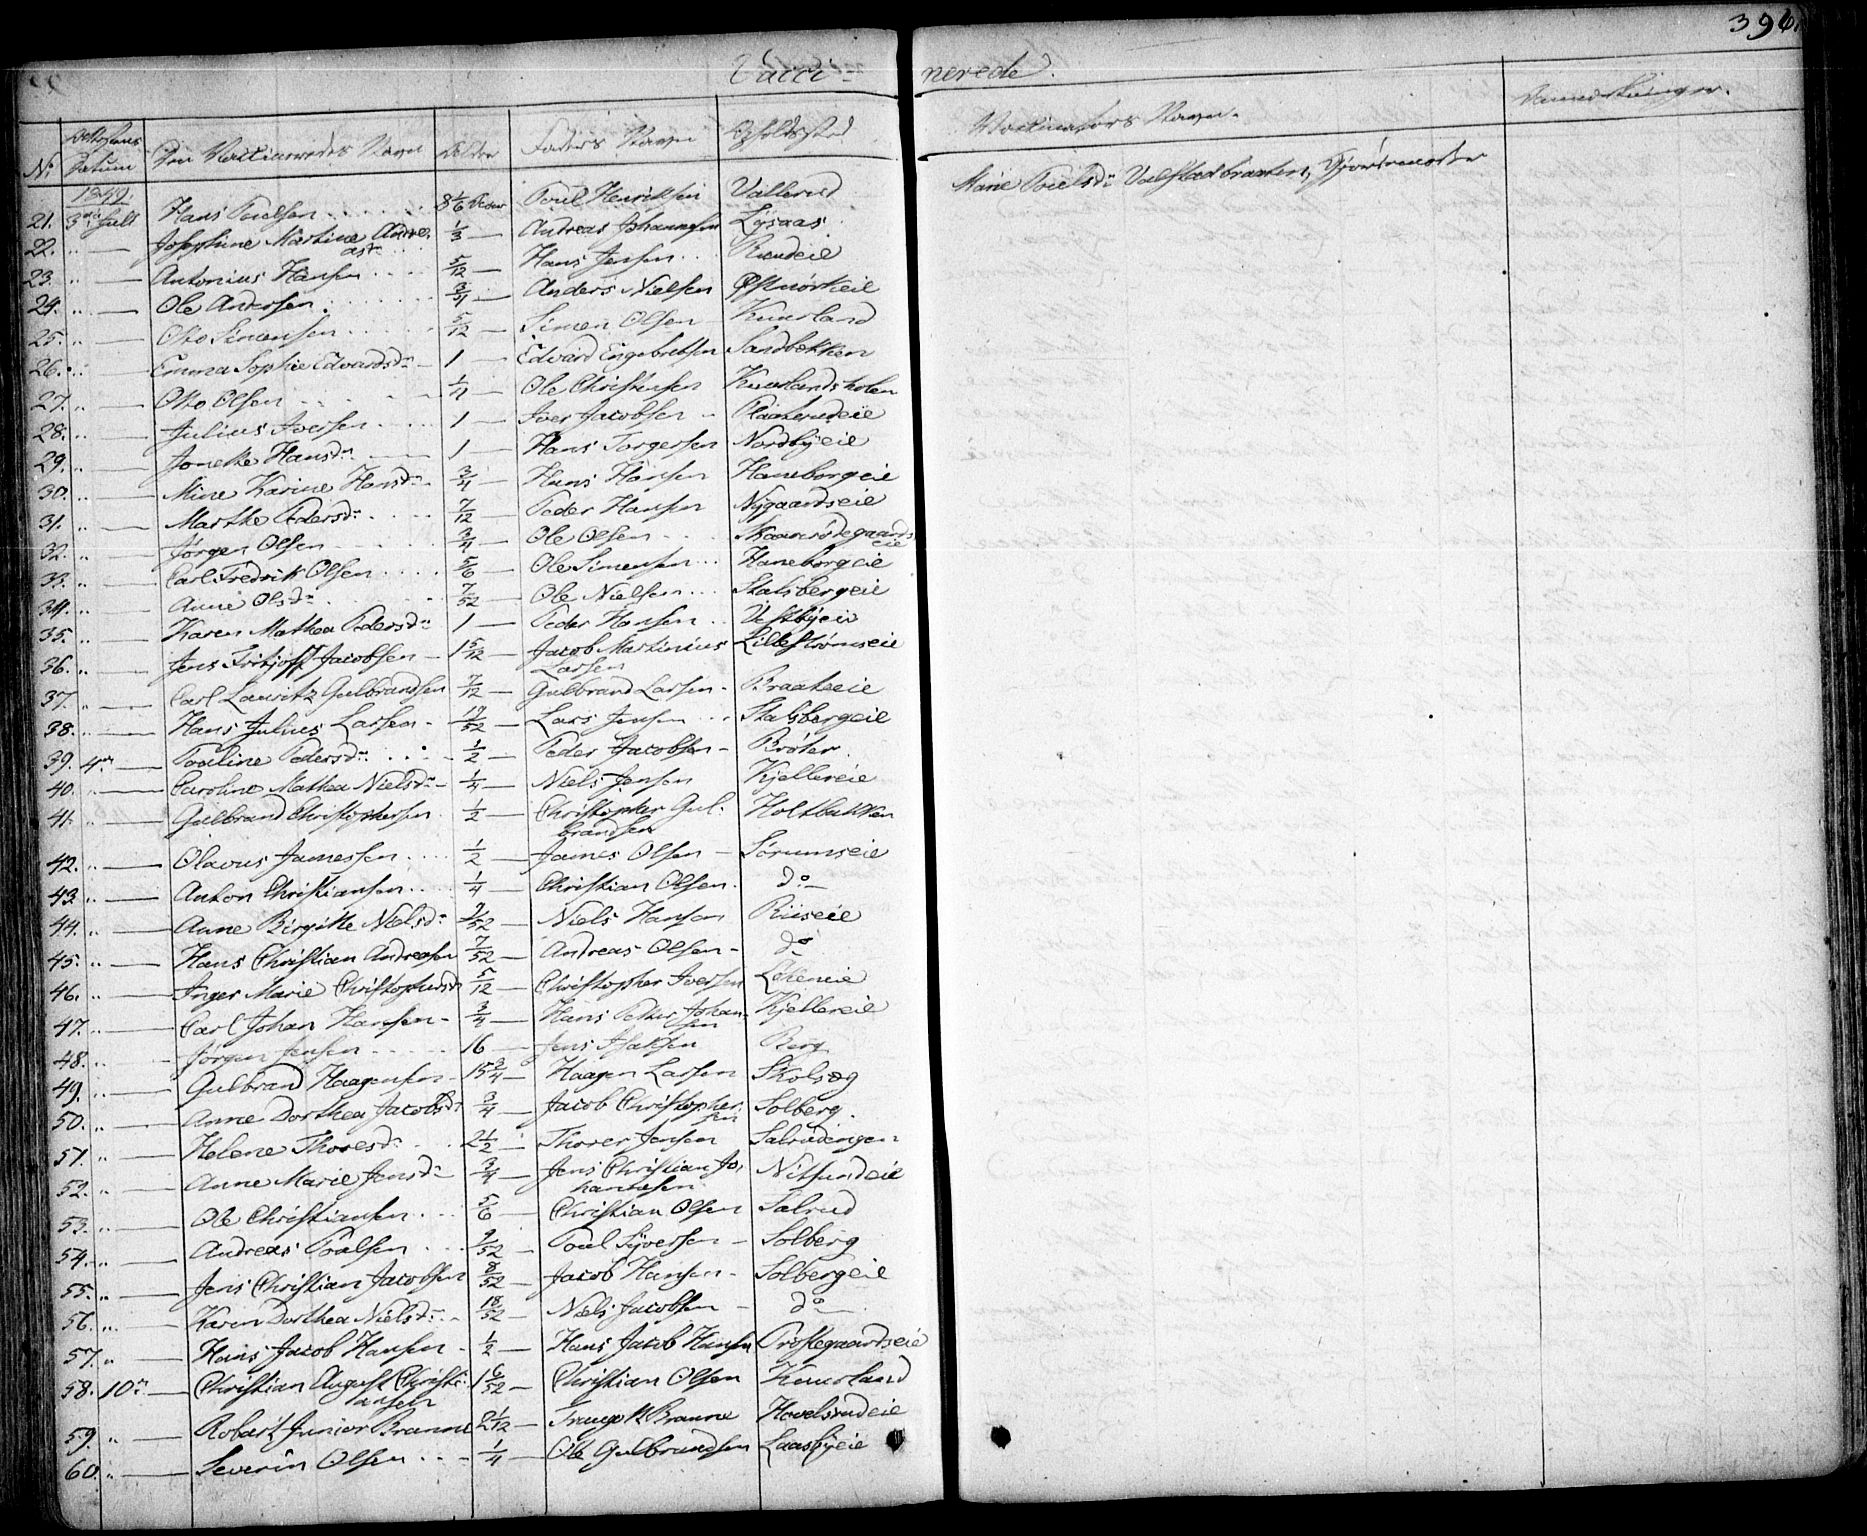 396
Vacci-
nerede.
No
Attestens Datum
Den Vaccineredes Navn
Alder
Faders Navn
Opholdssted
Vaccinators Navn.
Anmærkninger.
1849.
21. 3die Juli Hans Poulsen 8 1/6 Poul Henriksen Vallerud Marie Poulsdr Valstadbraaten, Gjordemoder
22. " — Josephine Martine Andre- 1/3 — Andreas Johannesen Lysaas
asdr
23. " — Antonius Hansen 5/12 — Hans Jensen Rudeie
24. " — Ole Andersen 3/4 — Anders Nielsen
25. " Otto Simensen 5/12 — Simen Olsen Kuurland
26. " Emma Sophie Edvardsdr 1 — Edvard Engebretsen Sandbekken
27. " — Otto Olsen 1/4 — Ole Christensen
28. " — Julius Iversen 1 — Iver Jacobsen
29. " — Hansdr 1 — Hans Torgersen Nordbyeie
30. " — Mine Karine Hansdr 3/4 — Hans Hansen Haneborgeie
31. " — Marthe Pedersdr 7/12 — Peder Hansen Nygaardseie
32. " — Jørgen Olsen 3/4 — Ole Olsen
33. " — Carl Fredrik Olsen 5/6 — Ole Simensen Haneborgeie
34. " — Anne Olsdr 7/52 — Ole Nielsen Stalsbergeie
35. " — Karen Mathea Pedersdr 1 — Peder Hansen Vestbyeie
36. " — Jens Fritjoff Jacobsen 1 5/12 — Jacob Martinius Lillestrømseie
Larsen
37. " — Carl Lauritz Gulbrandsen 7/12 — Gulbrand Larsen Braateeie
38. " — Hans Julius Larsen 17/52 — Lars Jensen Stalsbergeie
39. 4de — Pauline Pedersdr 1/2 — Peder Jacobsen Brøter
40. " — Caroline Mathea Nielsdr 1/4 — Niels Jensen Kjellereie
41. " — Gulbrand Christophersen 1/2 — Christopher Gul- Holtbakken
brandsen
42. " — Olavus Jamessen 1/2 — James Olsen Sørumseie
43. " — Anton Christiansen 1/4 — Christian Olsen do
44. " — Anne Birgitte Nielsdr 9/52 — Niels Hansen Riiseie
45. " — Hans Christian Andresen 7/52 — Andreas Olsen do
46. " — Inger Marie Christophersdr 5/12 — Christopher Iversen Løkeneie
47. " — Carl Johan Hansen 3/4 — Hans Petter Johan- Kjellereie
sen
48. " Jørgen Jensen 16 — Jens Isaksen Berg
49. " — Gulbrand Haagensen 15 3/4 — Haagen Larsen
50. " — Anne Dorthea Jacobsdr 3/4 — Jacob Christopher- Solberg
sen
51. " — Helene Thoresdr 2 1/2 — Thorer Jensen
52. " — Anne Marie Jensdr 3/4 — Jens Christian Jo- Nitsundeie
hannesen
53. " — Ole Christiansen 5/6 — Christian Olsen Salerud
54. " — Andreas Poulsen 9/52 — Poul Syversen Solberg
55. " — Jens Christian Jacobsen 8/52 — Jacob Hansen Solbergeie
56. " — Karen Dorthea Nielsdr 18/52 — Niels Jacobsen do
57. " — Hans Jacob Hansen 1/2 — Hans Jacob Hansen Præstegaardseie
58. 10de — Christian August Christi- 1 6/52 — Christian Olsen Kuurland
ansen
59. " — Robart Junior Branne 2 1/12 — Branne Hovelsrudeie
60. " — Severin Olsen 1/4 — Ole Gulbrandsen Laasbyeie